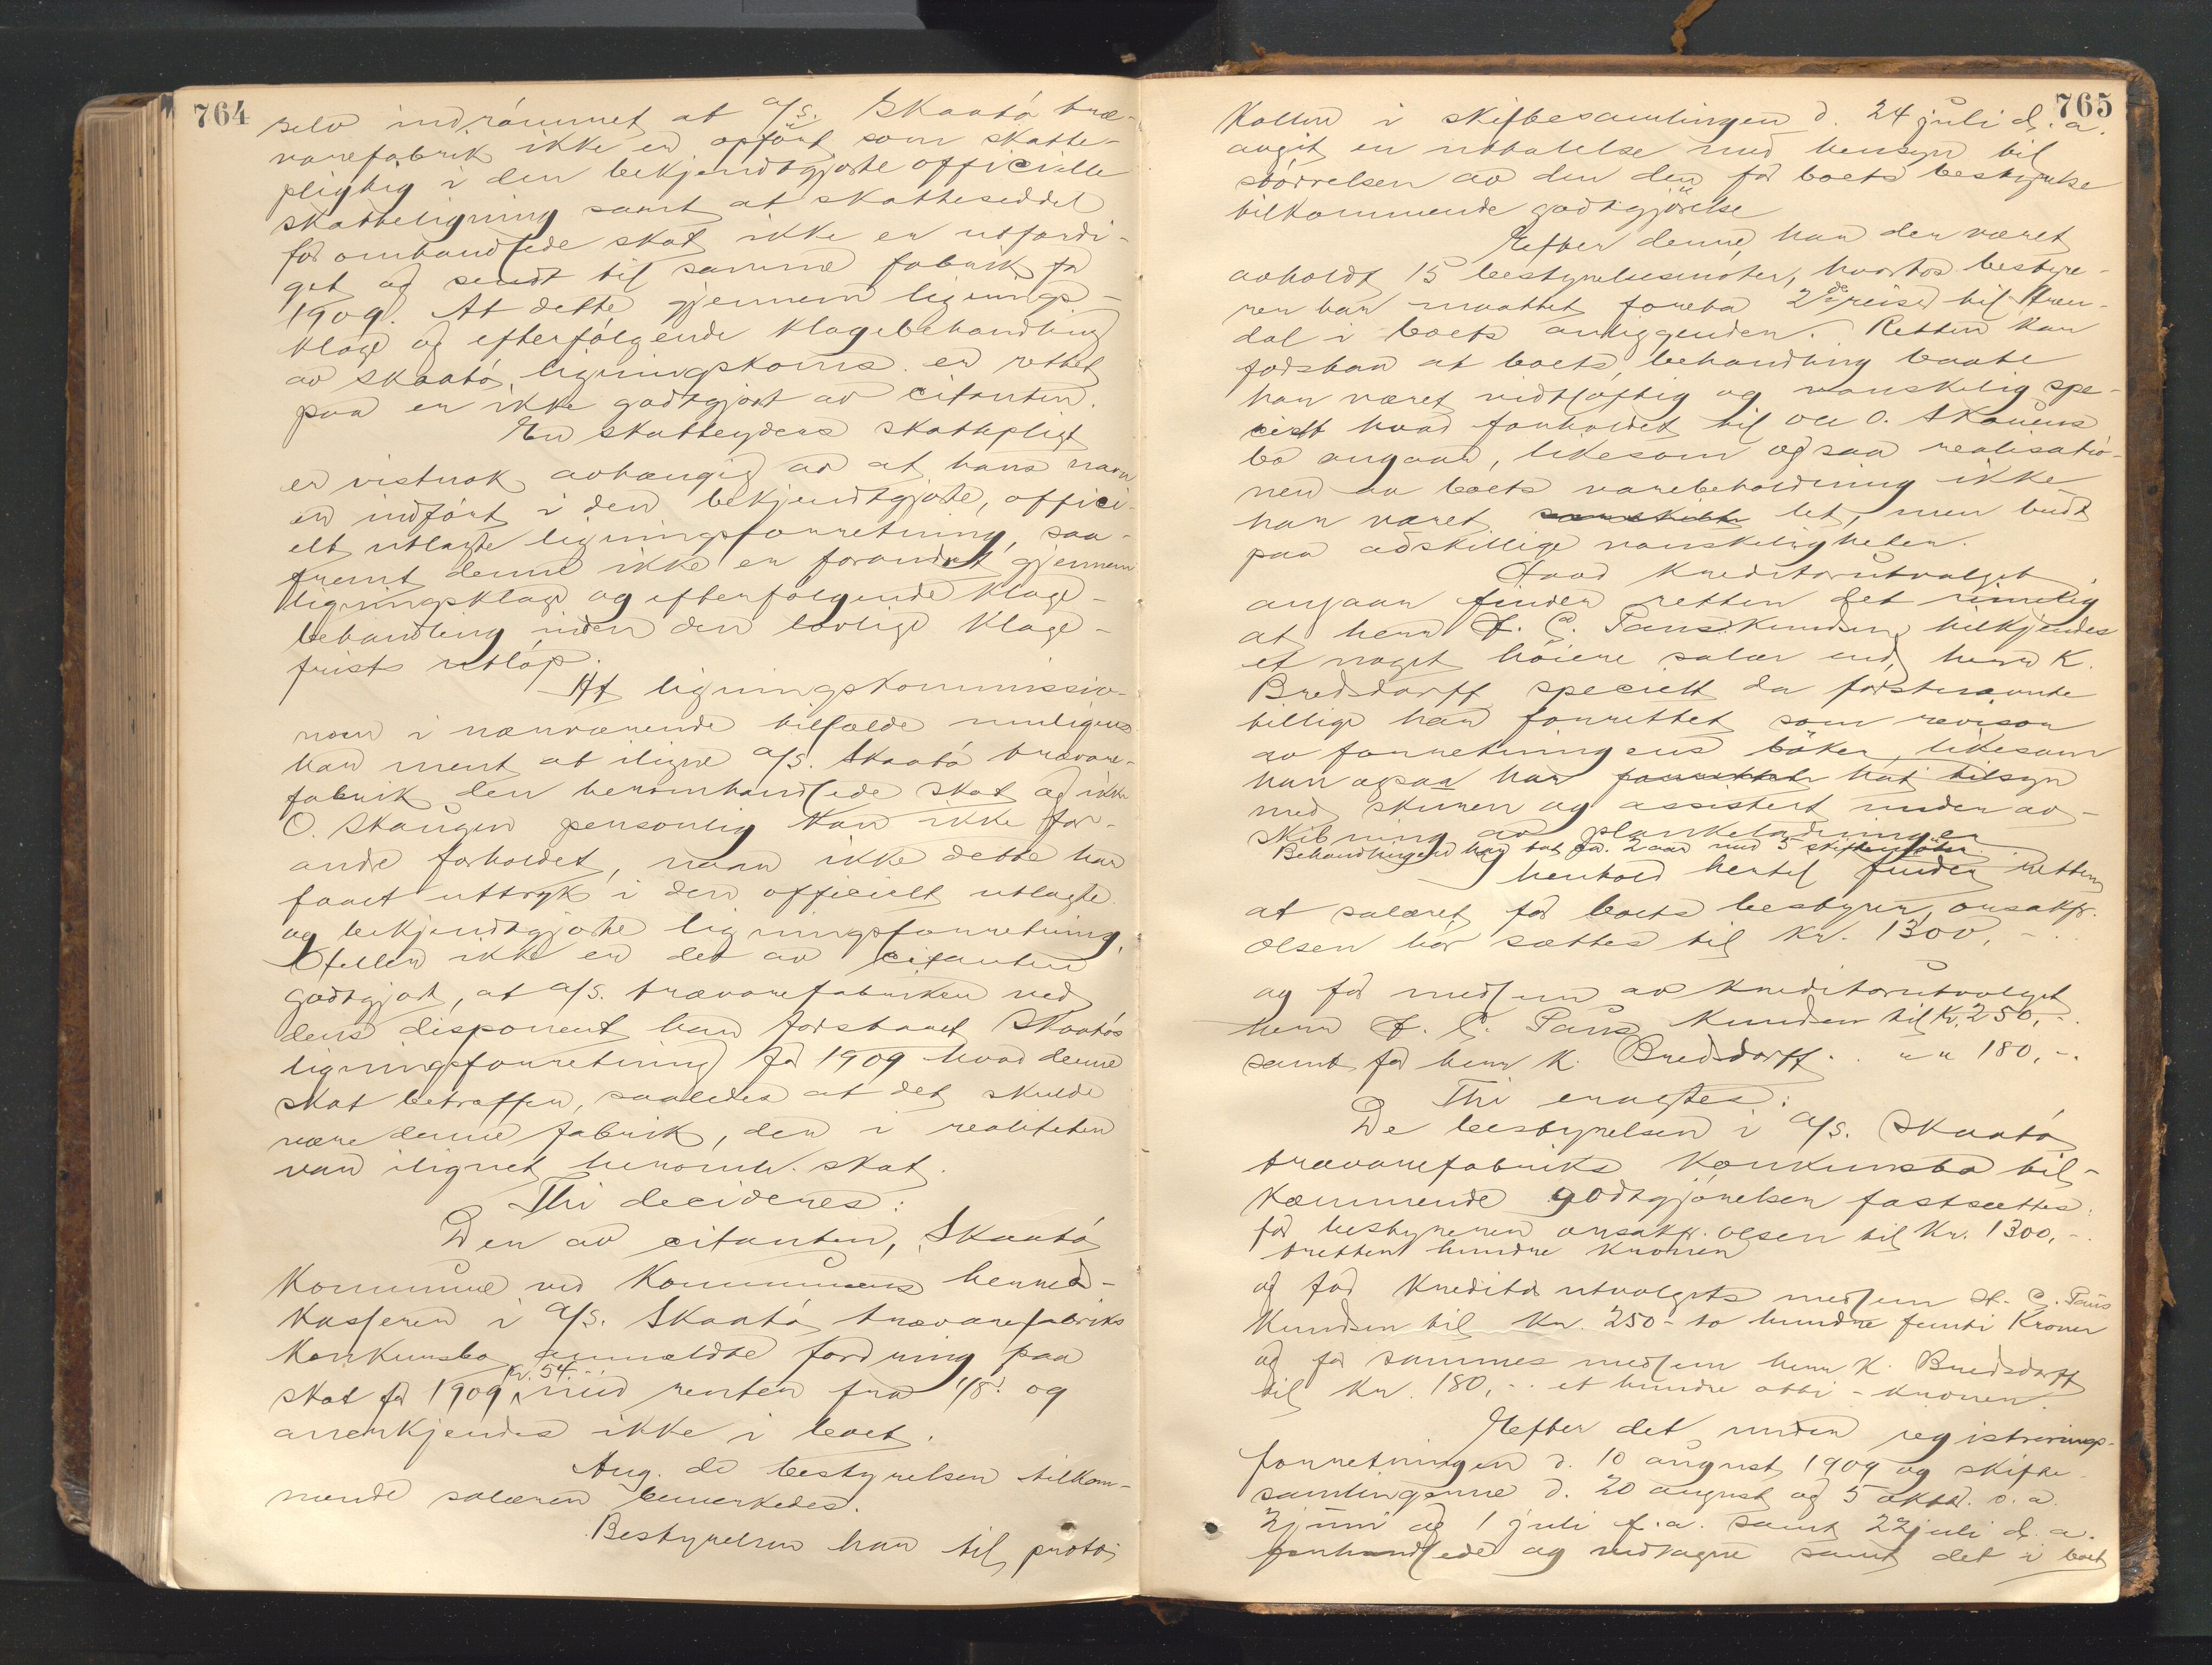 764
selv indrømmet at A/S. Skaatø træ-
varefabrik ikke er opført som skatte-
pligtig i den bekjendtgjorte officielle
skatteligning samt at skatteseddel
for omhandlede skat ikke er utfærdi-
get og sendt til samme fabrik for
1909. At dette gjennem lignings-
klage og efterfølgende klagebehandling
av Skaatø ligningskoms. er rettet
paa er ikke godtgjort av citanten.
En skatteyders skattepligt
er vistnok avhængig av at hans navn
er indført i den bekjendtgjorte, offici-
elt utlagte ligningsforretning, saa-
fremt denne ikke er forandret gjennem
ligningsklage og efterfølgende klage-
behandling inden den lovlige klage-
frists utløp.
At ligningskommissio-
nen i nærværende tilfælde muligens
har ment at iligne A/S. Skaatø trævare-
fabrik den heromhandlede skat og ikke
O. Skaugen personlig kan ikke for-
andre forholdet, naar ikke dette har
faaet uttryk i den officielt utlagte
og bekjendtgjorte ligningsforretning.
Heller ikke er det av citanten
godtgjort, at A/S. trævarefabriken ved
dens disponent har forstaaet Skaatøs
ligningsforretning for 1909 hvad denne
skat betræffer, saaledes at det skulde
være denne fabrik, der i realiteten
var ilignet heromh. skat.
Thi decideres:
Den av citanten, Skaatø
Kommune ved Kommunens herreds-
kasserer i A/S. Skaatø trævarefabriks
Konkursbo anmeldte fordring paa
skat for 1909 kr. 54.- med renter fra 1/8. og
anerkjendes ikke i boet.
Ang. de bestyrelsen tilkom-
mende salærer bemerkedes.
Bestyrelsen har til proto-
765
kollen i skiftesamlingen d. 24 juli d. a.
avgit en uttalelse med hensyn til
størrelsen av den den for boets bestyrelse
tilkommende godtgjørelse
Efter denne har der været
avholdt 15 bestyrelsesmøter, hvorhos bestyre-
ren har maattet foreta 2de reiser til Aren-
dal i boets anliggender. Retten kan
forstaa at boets behandling baate
har været vidtløftig og vanskelig spe-
cielt hvad forholdet til O. Skauens
bo angaar, likesom ogsaa realisatio-
nen av boets varebeholdning ikke
har været let, men budt
paa adskillige vanskeligheter.
Hvad kreditorutvalget
angaar finder retten det rimelig
at herr H. C. Paus Knudsen tilkjendes
et noget høiere salær end herr K.
Bredsdorff specielt da førstnævnte
tillige har forrettet som revisor
av forretningens bøker, likesom
han ogsaa har forrettet hat tilsyn
med skuren og assistert under av-
skibning av plankeladninger.
Behandlingen har tat ca. 2 aar med 5 skiftemøter.
I henhold hertil finder retten
at salæret for boets bestyrer, orsakf.
Olsen bør sættes til kr. 1300,-.
og for medlem av kreditorutvalget
herr H. C. Paus Knudsen til kr. 250,-.
samt for herr K. Bredsdorff . . " " 180,-.
Thi eragtes:
De bestyrelsen i A/S. Skaatø
trævarefabriks Konkursbo til-
kommende godtgjørelser fastsættes:
for bestyreren orsakf. Olsen til kr. 1300,-.
tretten hundre kroner
og for kreditorutvalgets medlem H. C. Paus
Knudsen til kr. 250- to hundre femti Kroner
og for sammes medlem herr K. Bredsdorff
til kr. 180,-. et hundre otti - kroner.
Efter det under registrerings-
forretningen d. 10 august 1909 og skifte-
samlingerne d. 20 august og 5 oktbr. s. a.
2 juni og 1 juli f. a. samt 22 juli d. a.
forhandlede og vedtagne samt det i boet